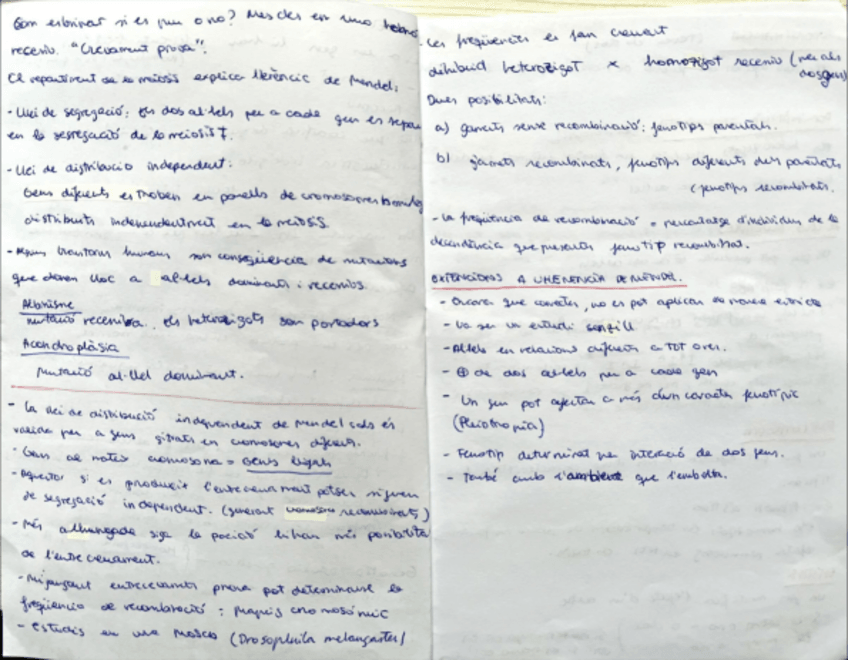 Com esbrinar si és pur o no? Mescles en uno homo.
receviu. "Creuament prova".
El repartiment de la meiosis explica llerència de Mendel:
- Llei de segregació: els dos al·lels per a cada gen es separa
en la segregació de la meiosis I.
- Llei de distribucio independent.
Gens diferents es troben en parells de cromosomes homòlg
distribuits independentment en la meiosis.
- trastorns humans son conseqüencia de mutacions
que donen lloc a al·lels dominants i recesius.
Albinisme
mutació recesiva. els heterozigots son portadors
Acondroplàsia
Mutació al·lel dominant.
- La llei de distribució independent de Mendel sols és
valida per a gens situats en cromosomes diferents.
- Gens al mateix cromosoma = Gens lligats
- Aquestos si es produeix l'entrecreuament poden
de segregació independent. (generant cromosomes recombinats)
- Més allunyada siga la posició hi han més posibilitats
de l'entrecreuament.
- Mitjançant entrecreuaments prova pot determinarse la
freqüencia de recombinació: Mapeig cromosòmic
- estudis en una mosca (Drosophila melangaster)
- Les freqüències es fan creuant
dihibrid heterozigot x homozigot receviu (per als
dos gens)
Dues posibilitats:
a) gamets sense recombinació: fenotips parentals.
b) gamets recombinats, fenotips diferents dels parentals
(fenotips recombinats.
- La freqüencia de recombinació = percentatge d'individus de la
decendència que presenta fenotip recombinat.
EXTENCIONS A L'HERENCIA DE MENDEL.
- Encara que correctes, no es pot aplicar de manera estricta
- Va ser un estudi senzill
- Al·lels en relacions diferents a TOT arreu.
- ⊕ de dos al·lels per a cada gen
- Un gen pot afectar a més d'un caracter fenotípic
(Pleiotropia)
- Fenotip determinat per interació de dos gens.
- També amb l'ambient que l'embolta.